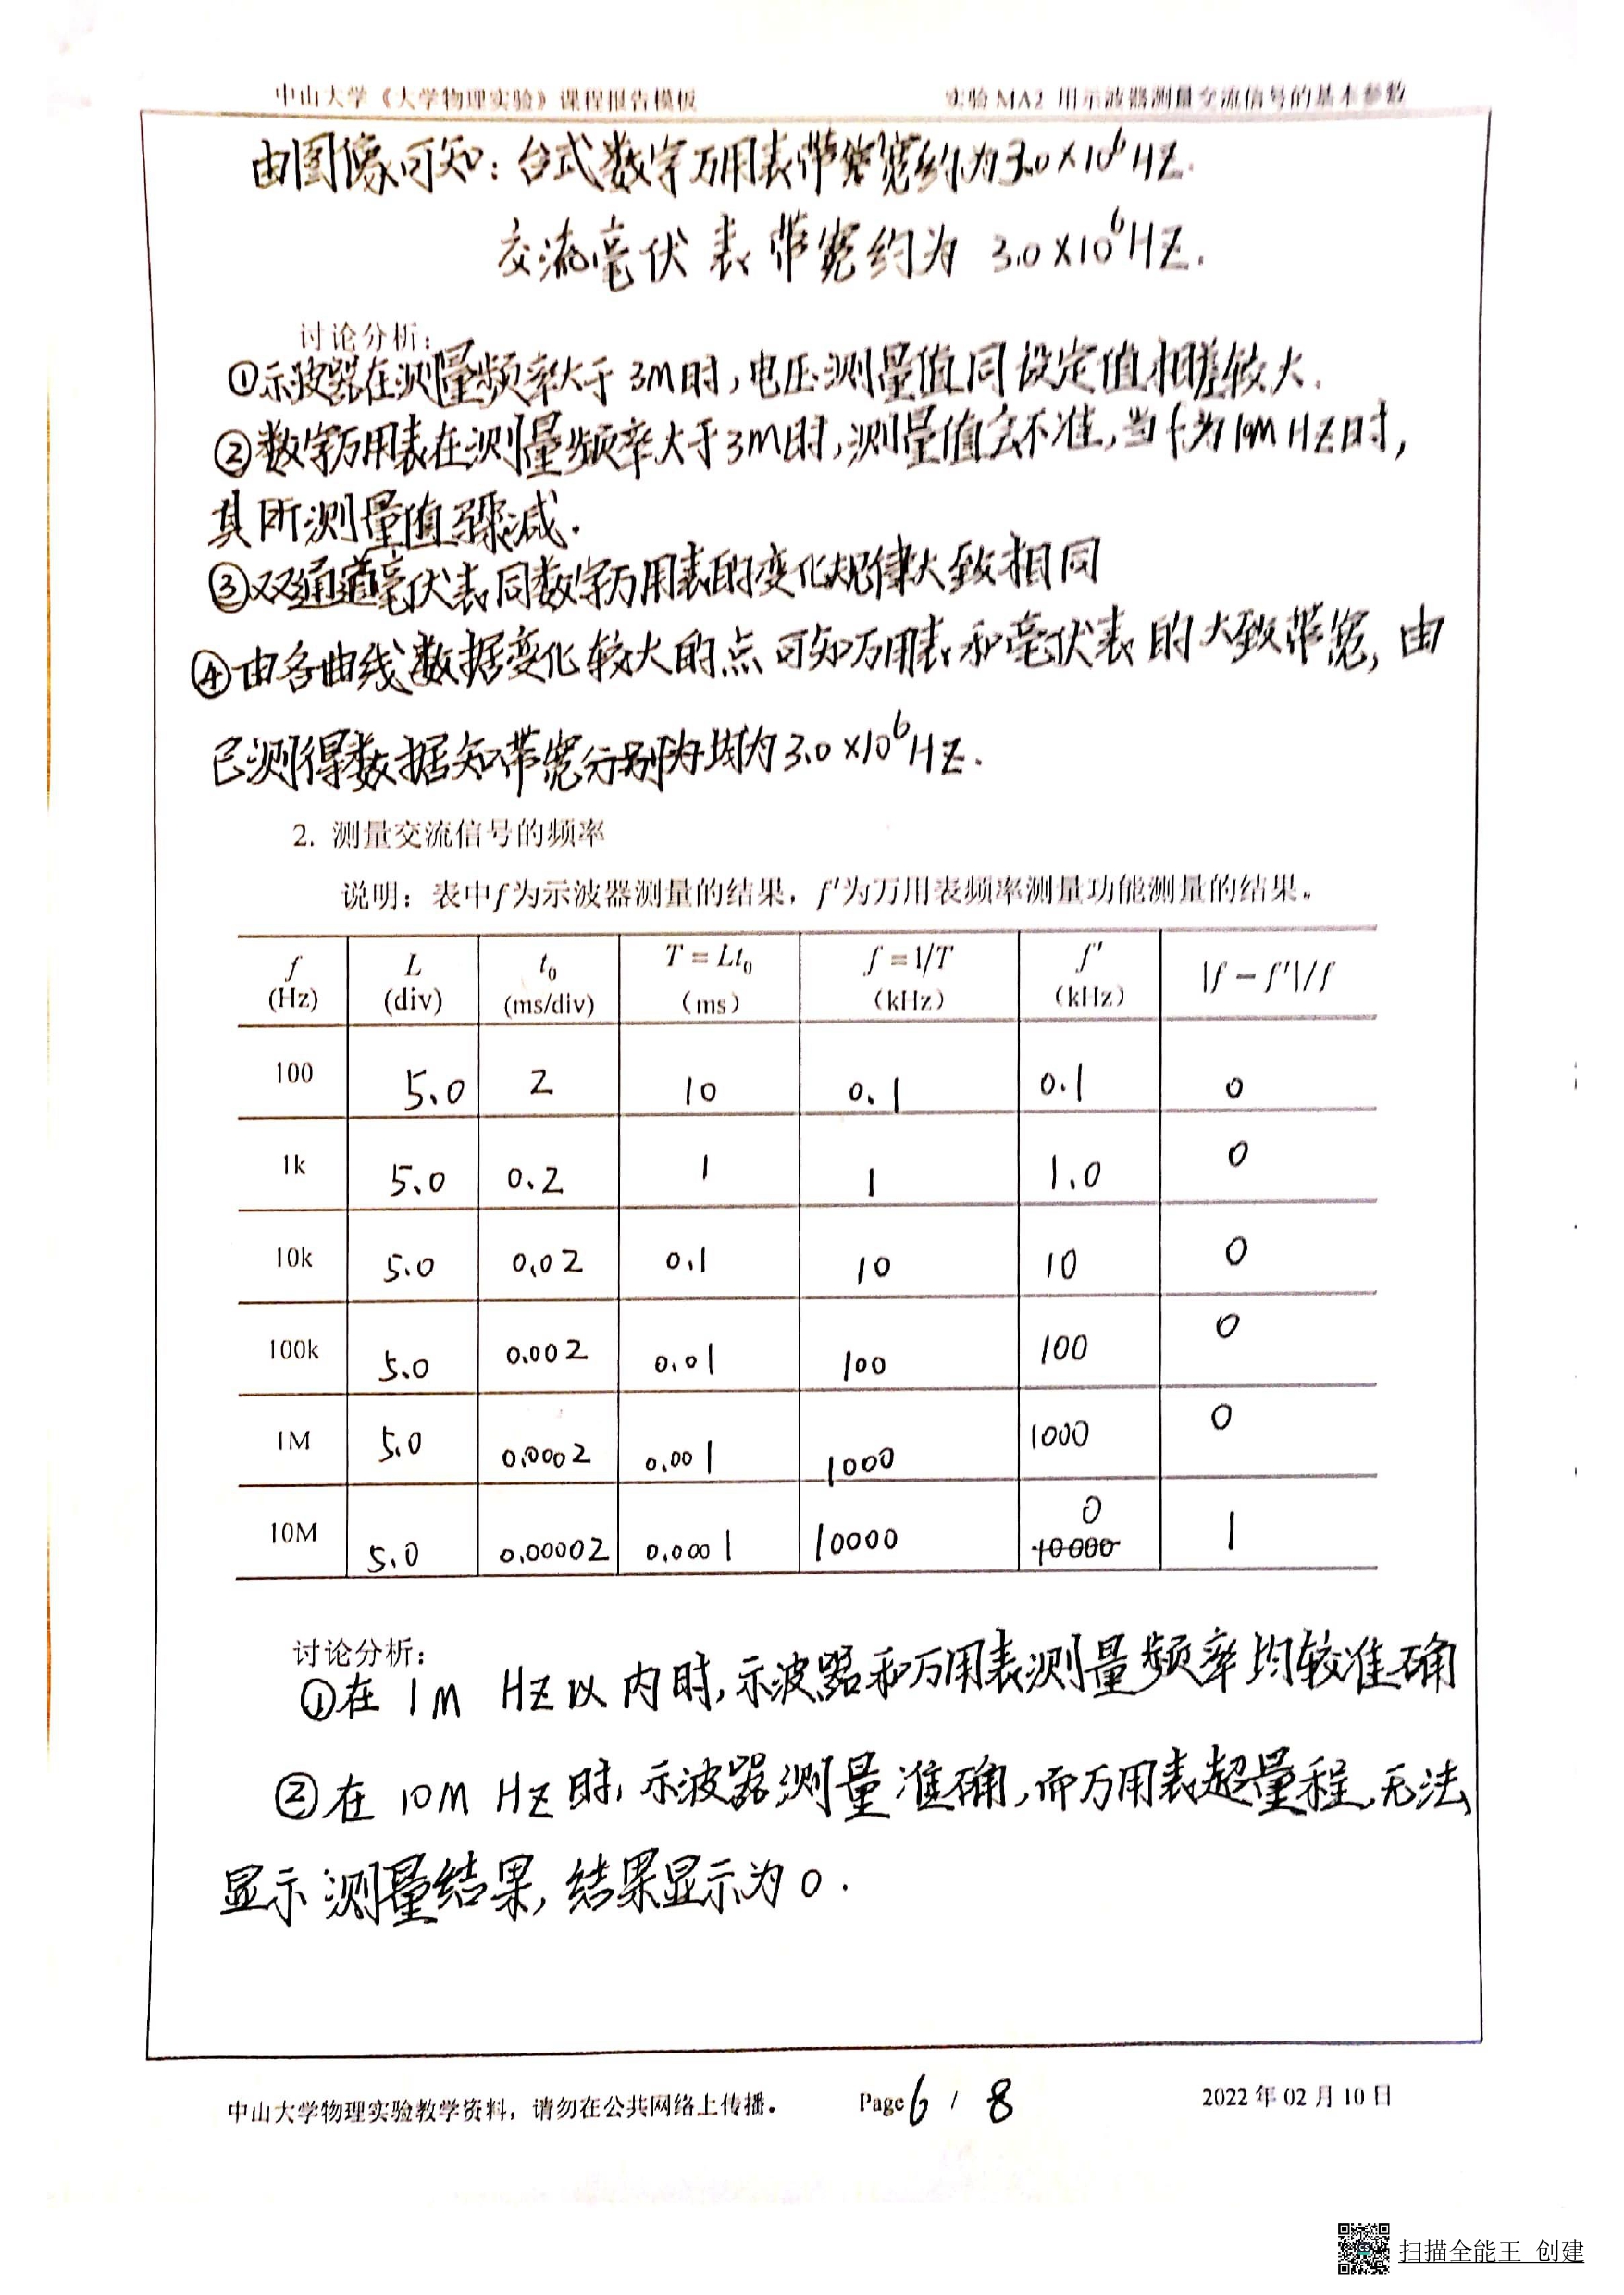 中山大学《大学物理实验》课程报告模板 实验 MA2 用示波器测量交流信号的基本参数
由图像可知：台式数字万用表带宽约为3.0×10⁶HZ.
交流毫伏表带宽约为 3.0×10⁶HZ.
讨论分析：
①示波器在测量频率大于 3M时,电压测量值同设定值相差较大.
②数字万用表在测量频率大于3M时,测量值会不准,当f为10M HZ时,
其所测量值骤减.
③双通道毫伏表同数字万用表的变化规律大致相同
④由各曲线数据变化较大的点可知万用表和毫伏表的大致带宽,由
已测得数据知带宽分别为均为3.0×10⁶HZ.
2. 测量交流信号的频率
说明：表中f为示波器测量的结果，f′为万用表频率测量功能测量的结果。
f L t₀ T = Lt₀ f = 1/T f′ |f − f′|/f
(Hz) (div) (ms/div) （ms） （kHz） （kHz）
100 5.0 2 10 0.1 0.1 0
1k 5.0 0.2 1 1 1.0 0
10k 5.0 0.02 0.1 10 10 0
100k 5.0 0.002 0.01 100 100 0
1M 5.0 0.0002 0.001 1000 1000 0
10M 5.0 0.00002 0.0001 10000 0 1
10000
讨论分析：
①在 1M HZ以内时,示波器和万用表测量频率均较准确
②在 10M HZ时,示波器测量准确,而万用表超量程,无法
显示测量结果,结果显示为0.
中山大学物理实验教学资料，请勿在公共网络上传播。 Page 6 / 8 2022 年 02 月 10 日
扫描全能王 创建